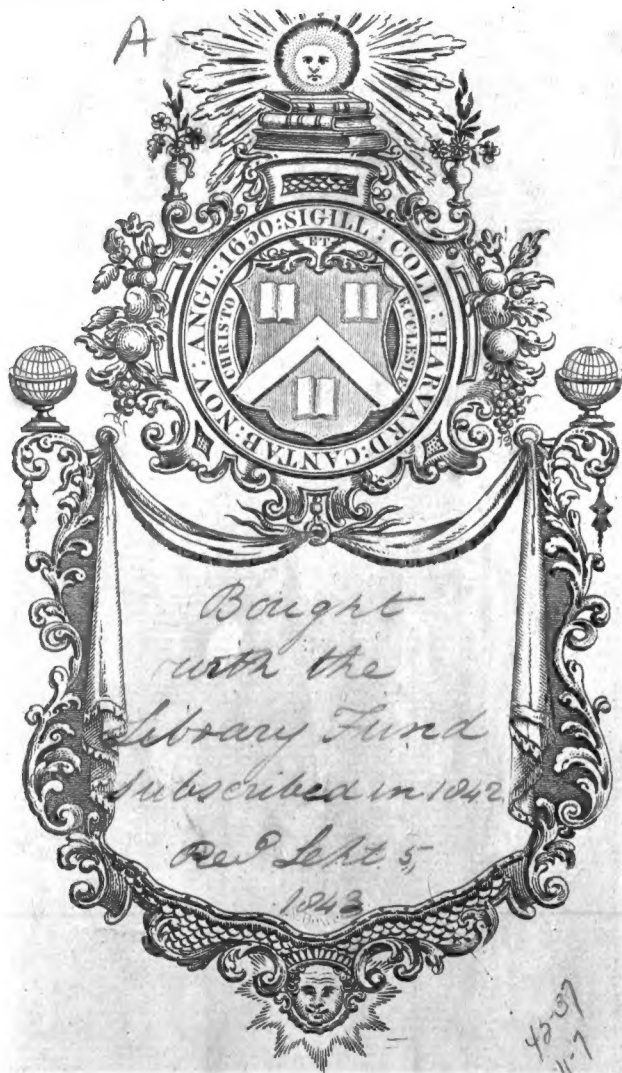 A
SIGILL : COLL : HARVARD : CANTAB : NOV : ANGL : 1650 :
CHRISTO ET ECCLESIÆ
Bought
with the
Library Fund
subscribed in 1842
Rec<sup>d</sup> Sept. 5,
1843
42-37